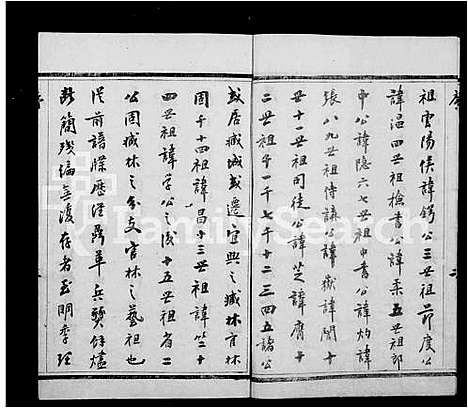 祖雲陽侯諱鍔公三世祖節度公
諱温四世祖檢書公諱柔五世祖郎
中公諱隐六七世祖中書公諱灼諱
張八九世祖侍讓公諱嶽諱閏十
世十一世祖司徒公諱芝諱膺十
二世祖千一千七千十二三四五諸公
或居臧城或遷宜興之臧林官林
固千十四祖諱昌十三世祖諱竺十
四世祖諱字公之後十五世祖省二
公固臧林之分支官林之藝祖也
從前譜牒歷經鼎革兵燹餘燼
断簡殘编無復存者至明季經
FamilySearch